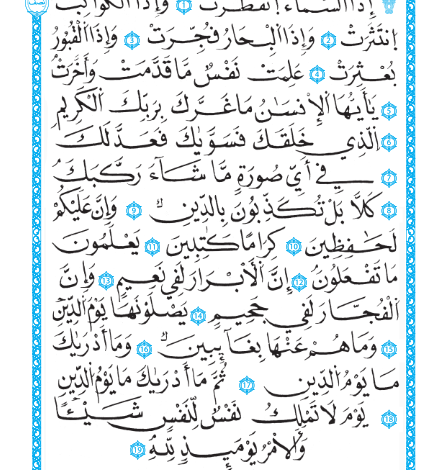 إِذَا السَّمَاءُ انفَطَرَتْ ١ وَإِذَا الْكَوَاكِبُ
انتَثَرَتْ ٢ وَإِذَا الْبِحَارُ فُجِّرَتْ ٣ وَإِذَا الْقُبُورُ
بُعْثِرَتْ ٤ عَلِمَتْ نَفْسٌ مَّا قَدَّمَتْ وَأَخَّرَتْ
٥ يَا أَيُّهَا الْإِنسَانُ مَا غَرَّكَ بِرَبِّكَ الْكَرِيمِ
٦ الَّذِي خَلَقَكَ فَسَوَّاكَ فَعَدَلَكَ
٧ فِي أَيِّ صُورَةٍ مَّا شَاءَ رَكَّبَكَ
٨ كَلَّا بَلْ تُكَذِّبُونَ بِالدِّينِ ٩ وَإِنَّ عَلَيْكُمْ
لَحَافِظِينَ ١٠ كِرَامًا كَاتِبِينَ ١١ يَعْلَمُونَ
مَا تَفْعَلُونَ ١٢ إِنَّ الْأَبْرَارَ لَفِي نَعِيمٍ ١٣ وَإِنَّ
الْفُجَّارَ لَفِي جَحِيمٍ ١٤ يَصْلَوْنَهَا يَوْمَ الدِّينِ
١٥ وَمَا هُمْ عَنْهَا بِغَائِبِينَ ١٦ وَمَا أَدْرَاكَ
مَا يَوْمُ الدِّينِ ١٧ ثُمَّ مَا أَدْرَاكَ مَا يَوْمُ الدِّينِ
١٨ يَوْمَ لَا تَمْلِكُ نَفْسٌ لِّنَفْسٍ شَيْئًا
وَالْأَمْرُ يَوْمَئِذٍ لِّلَّهِ ١٩